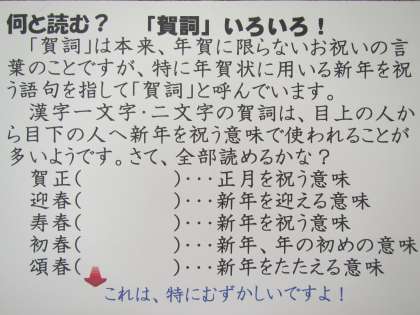 何と読む？　「賀詞」いろいろ！
「賀詞」は本来、年賀に限らないお祝いの言
葉のことですが、特に年賀状に用いる新年を祝
う語句を指して「賀詞」と呼んでいます。
漢字一文字・二文字の賀詞は、目上の人か
ら目下の人へ新年を祝う意味で使われることが
多いようです。さて、全部読めるかな？
賀正(　　　　　)・・・正月を祝う意味
迎春(　　　　　)・・・新年を迎える意味
寿春(　　　　　)・・・新年を祝う意味
初春(　　　　　)・・・新年、年の初めの意味
頌春(　　　　　)・・・新年をたたえる意味
これは、特にむずかしいですよ！